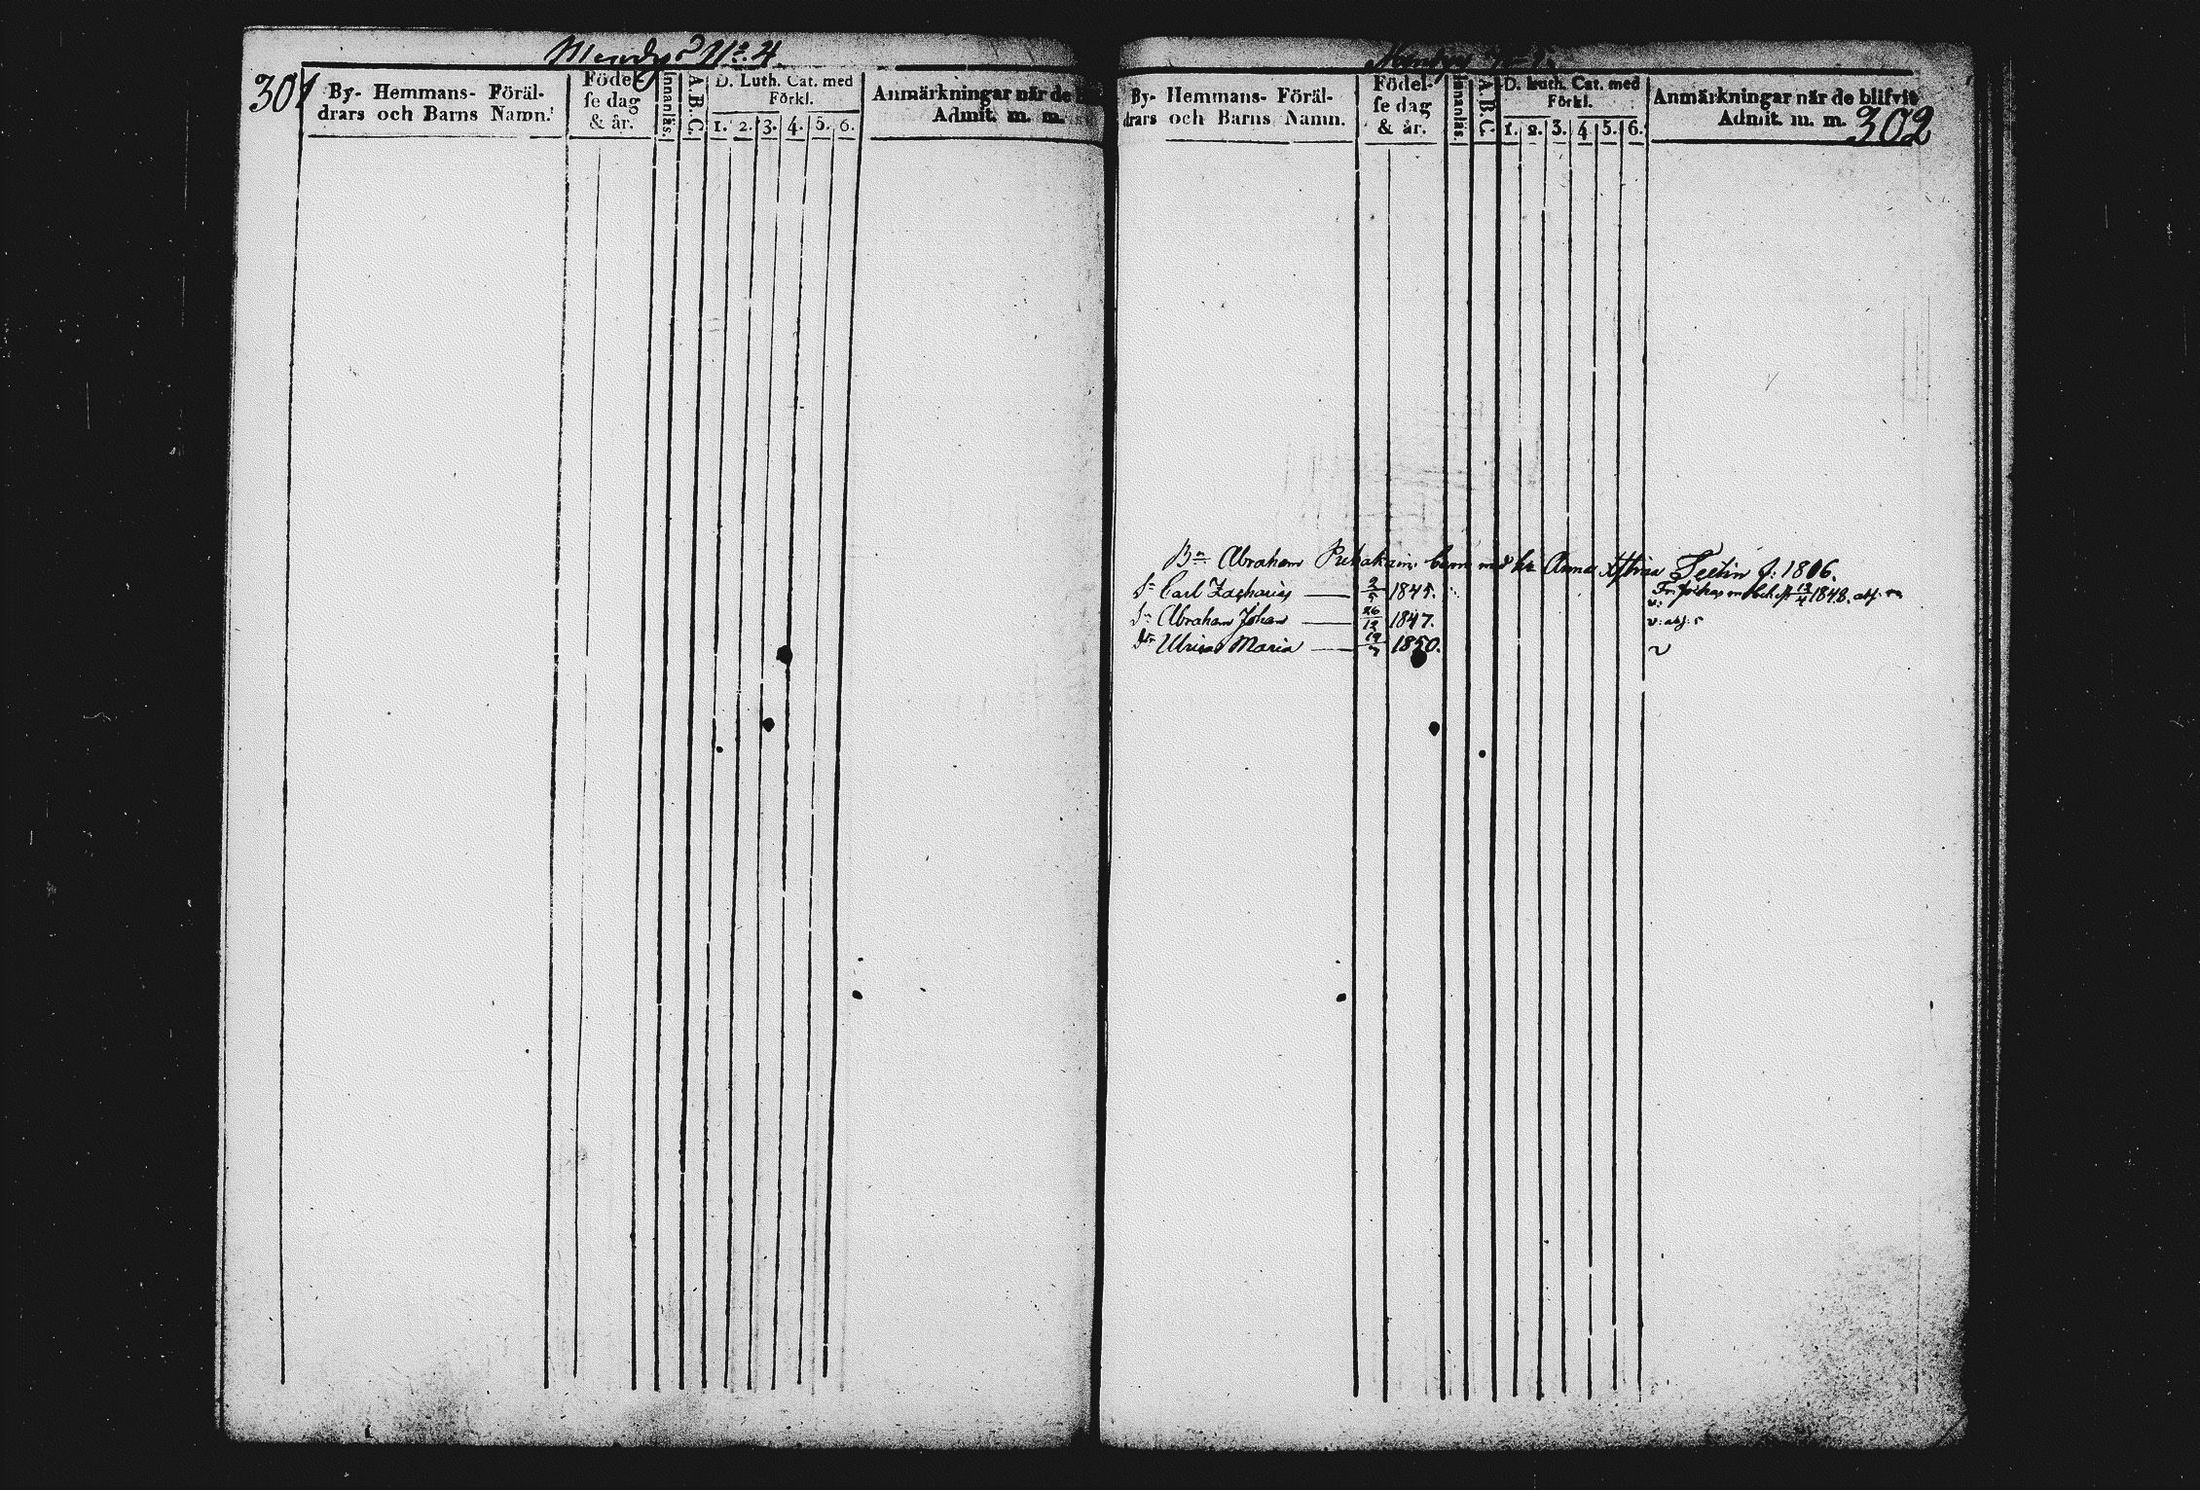 301
N:o 4.
By- Hemmans- Föräl-
drars och Barns Namn.
Födel-
se dag
& år.
Innanläs.
A.B.C.
D. Luth. Cat. med
Förkl.
1. 2. 3. 4. 5. 6.
Anmärkningar när de
Admit. m. m.
302
By- Hemmans- Föräl-
drars och Barns Namn.
Födel-
se dag
& år.
Innanläs.
A.B.C.
D. Luth. Cat. med
Förkl.
1. 2. 3. 4. 5. 6.
Anmärkningar när de blifvit
Admit. m. m.
Bn Abraham barn med h. Anna f: 1806.
Sn Carl Zacharias — 2/5 1845. 12/4 1848.
Sn Abraham Johan — 26/12 1847. v:
Dr Ulrica Maria — 19/7 1850. v